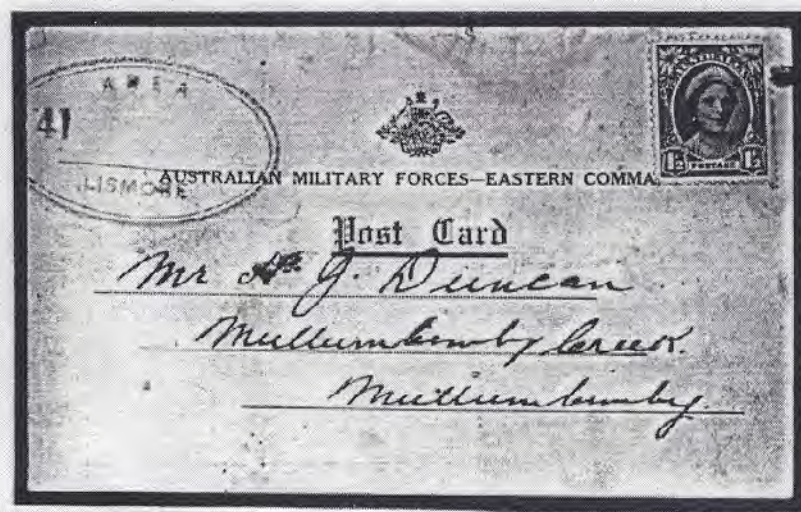 AREA
41
LISMORE
AUSTRALIA
1½ POSTAGE 1½
AUSTRALIAN MILITARY FORCES—EASTERN COMMA
Post Card
Mr J. Duncan
Mullumbimby Creek.
Mullumbimby.